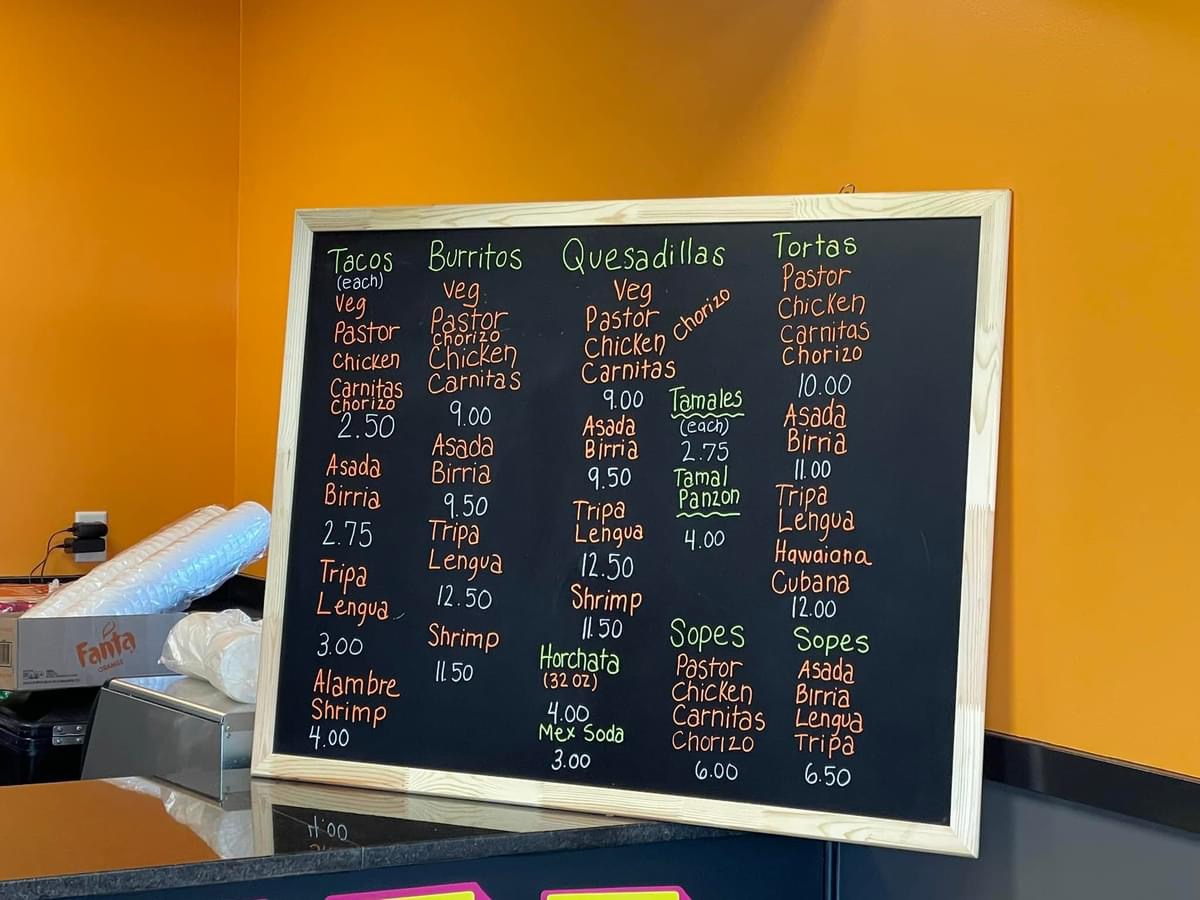 Tacos
(each)
Veg
Pastor
Chicken
Carnitas
Chorizo
2.50
Asada
Birria
2.75
Tripa
Lengua
3.00
Alambre
Shrimp
4.00
Burritos
Veg
Pastor
Chorizo
Chicken
Carnitas
9.00
Asada
Birria
9.50
Tripa
Lengua
12.50
Shrimp
11.50
Quesadillas
Veg
Pastor
Chicken
Carnitas
Chorizo
9.00
Asada
Birria
9.50
Tripa
Lengua
12.50
Shrimp
11.50
Horchata
(32 oz)
4.00
Mex Soda
3.00
Tamales
(each)
2.75
Tamal
Panzon
4.00
Sopes
Pastor
Chicken
Carnitas
Chorizo
6.00
Tortas
Pastor
Chicken
Carnitas
Chorizo
10.00
Asada
Birria
11.00
Tripa
Lengua
Hawaiana
Cubana
12.00
Sopes
Asada
Birria
Lengua
Tripa
6.50
Fanta
ORANGE